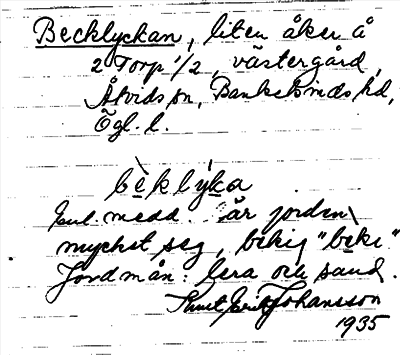 Becklyckan, liten åker å
2 Torp 1/2, västergård,
Åtvids sn, Bankekinds hd,
Ögl. l.
bèklýka
Enl. medd. är jorden
mycket seg, bekig "beki"
Jordmån: lera och sand.
Knut Erik Johansson
1935